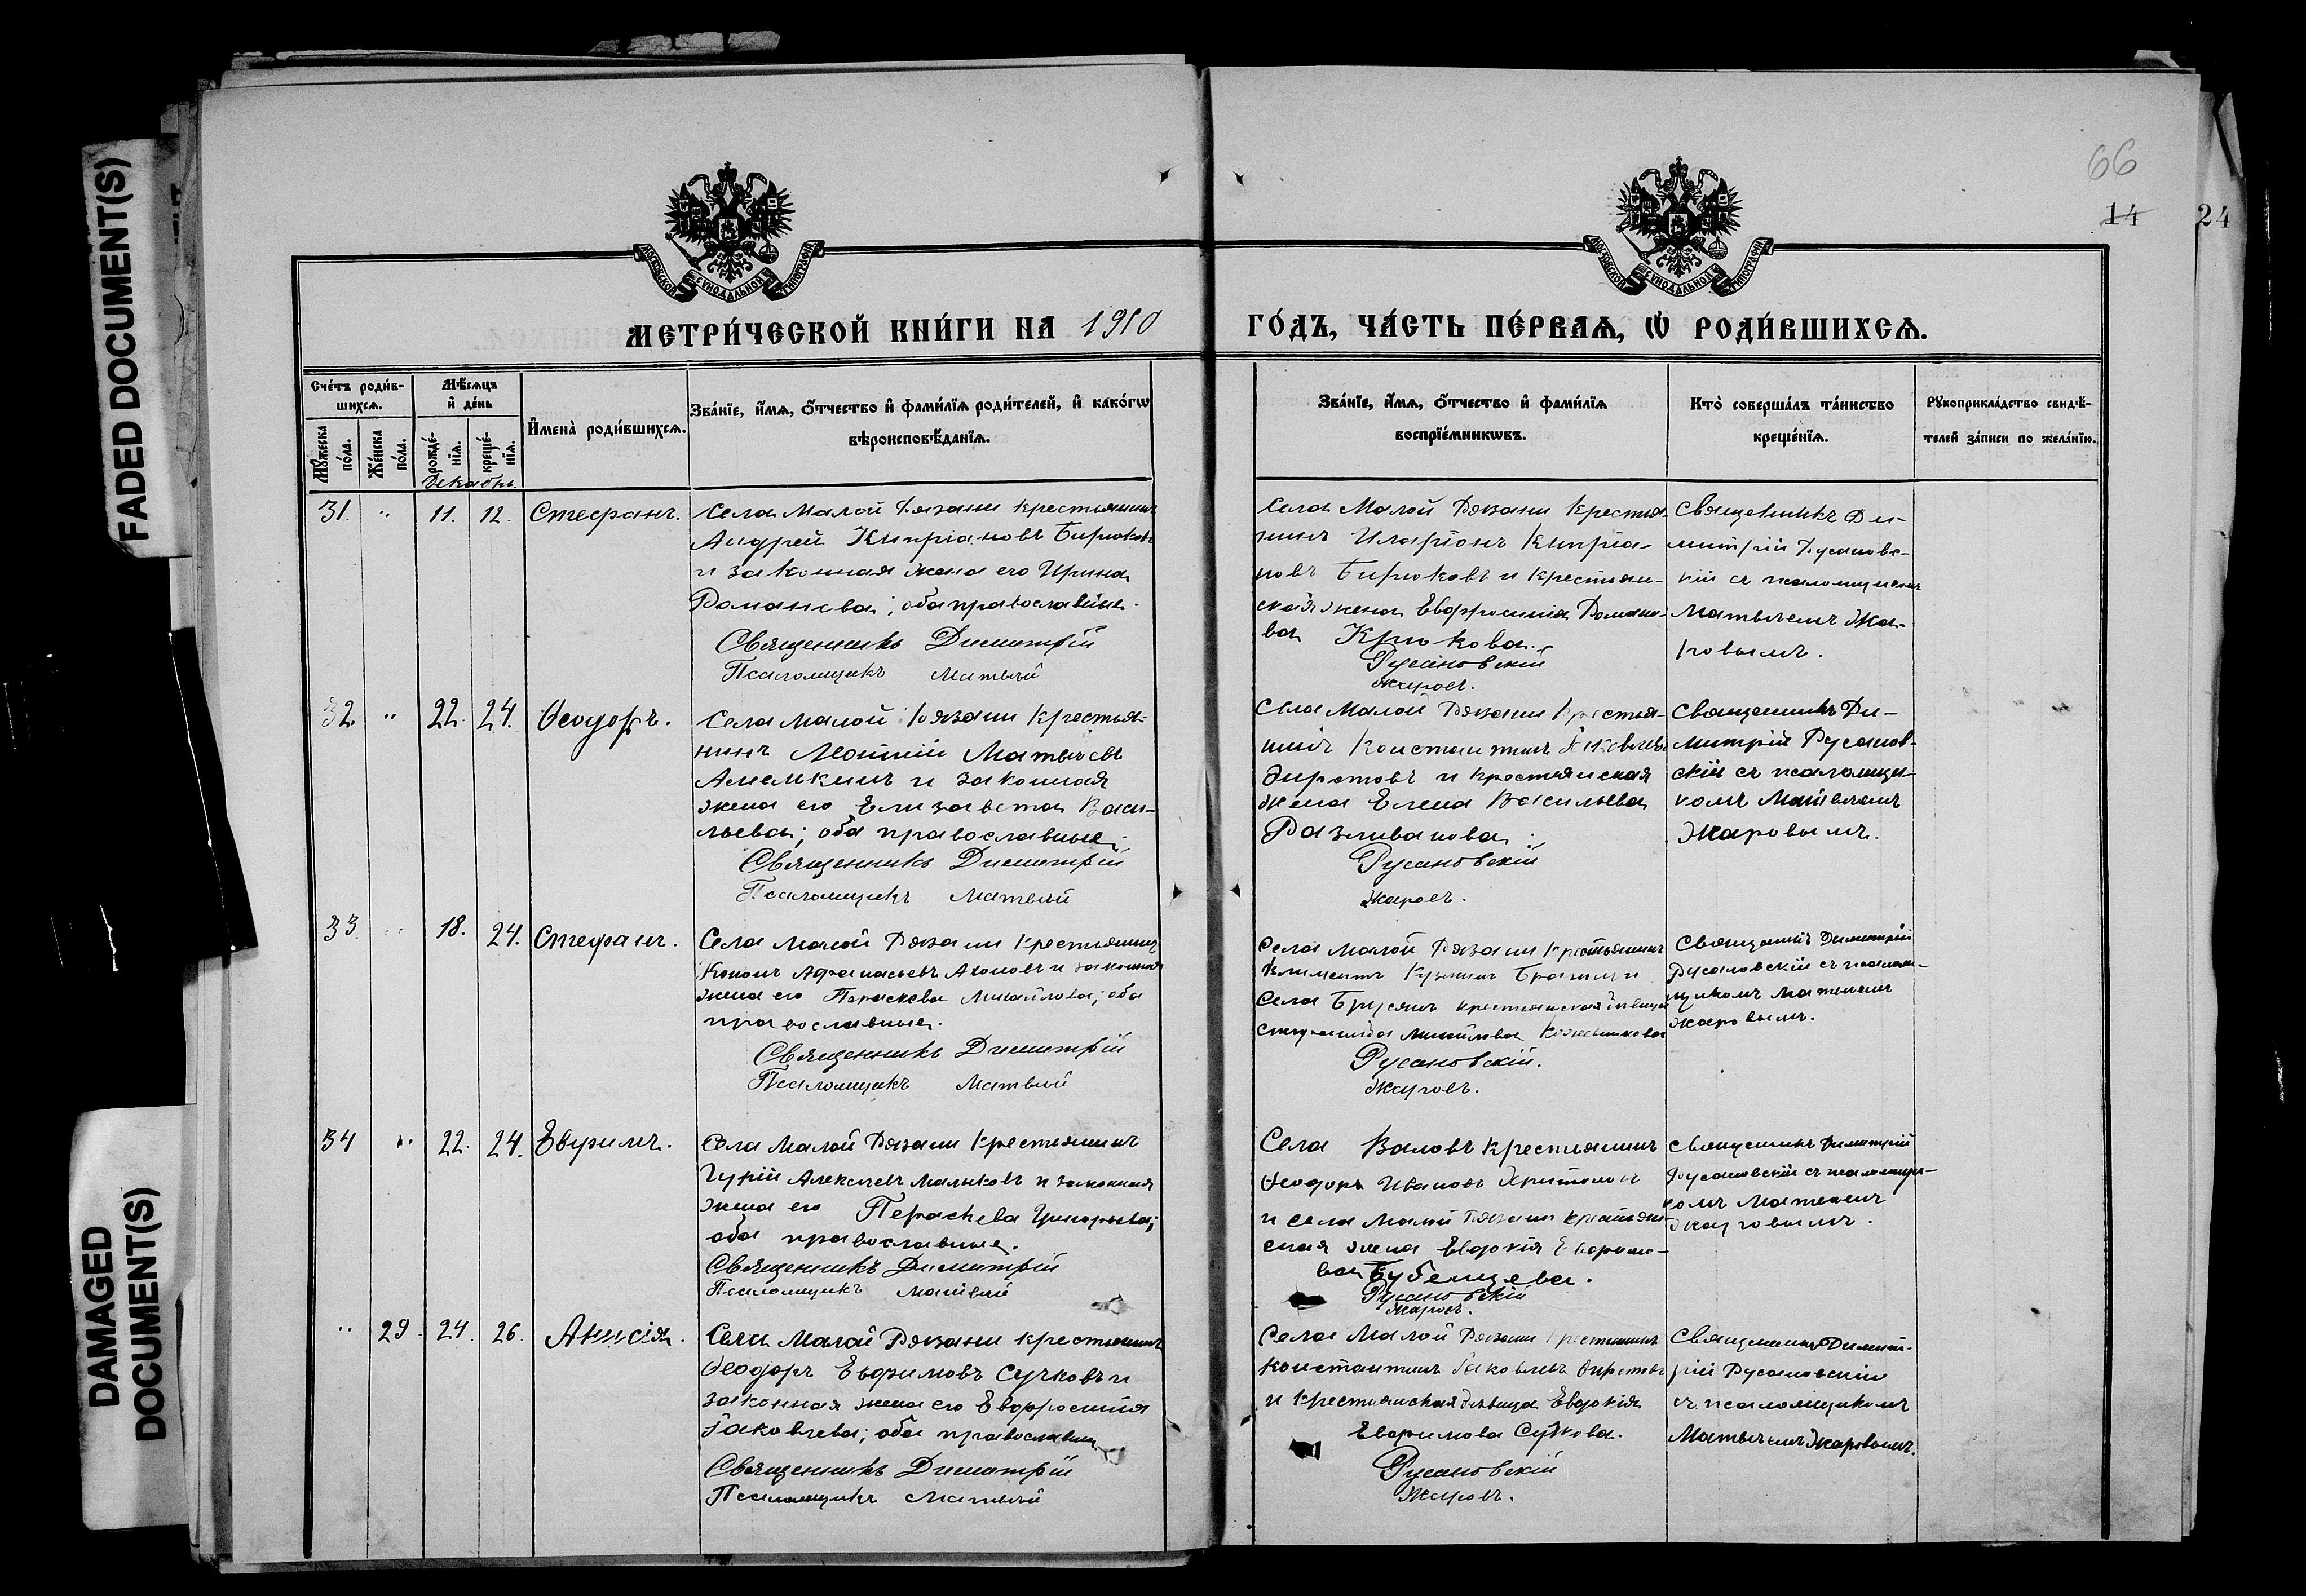 FADED DOCUMENT(S)
DAMAGED
DOCUMENT(S)
66
14
24
МОСКОВСКОЙ СѴНОДАЛЬНОЙ ТИПОГРАФІИ
МОСКОВСКОЙ СѴНОДАЛЬНОЙ ТИПОГРАФІИ
МЕТРИ́ЧЕСКОЙ КНИ́ГИ НА 1910
ГО́ДЪ, ЧА́СТЬ ПЕ́РВАѦ, Ѡ҆ РОДИ́ВШИХСѦ.
Сче́тъ роди́в-
шихсѧ.
Мѣ́сѧцъ
и҆ де́нь
Мꙋ́жеска
по́ла.
Же́нска
по́ла.
рожде́-
нїѧ.
креще́-
нїѧ.
Декабрь.
И҆мена̀ роди́вшихсѧ.
Зва́нїе, и҆́мѧ, ѻ҆́тчество и҆ фами́лїѧ роди́телей, и҆ како́гѡ
вѣроисповѣ́данїѧ.
Зва́нїе, и҆́мѧ, ѻ҆́тчество и҆ фами́лїѧ
воспрїе́мникѡвъ.
Кто̀ соверша́лъ та́инство
креще́нїѧ.
Рꙋкоприкла́дство свидѣ́-
телей за́писи по жела́нїю.
31. " 11. 12. Стефанъ.
Села Малой Рязани крестьянинъ
Андрей Кипріановъ Бирюковъ
и законная жена его Ирина
Романова; оба православные.
Священникъ Димитрій
Псаломщикъ Матвѣй
Села Малой Рязани крестья-
нинъ Иларіонъ Кипріа-
новъ Бирюковъ и крестьян-
ская жена Евфросинія Романо-
ва Крюкова.
Русановскій
Жаровъ.
Священникъ Ди-
митрій Русановс-
кій съ псаломщикомъ
Матвѣемъ Жа-
ровымъ.
32 " 22. 24. Ѳеодоръ.
Села Малой Рязани крестья-
нинъ Матвѣевъ
Амелькинъ и законная
жена его Елизавета Васи-
льева; оба православные.
Священникъ Димитрій
Псаломщикъ Матвѣй
Села Малой Рязани крестья-
нинъ Константинъ Яковлевъ
и крестьянская
жена Елена Васильева
Разливанова.
Русановскій
Жаровъ.
Священникъ Ди-
митрій Русанов-
скій съ псаломщи-
комъ Матвѣемъ
Жаровымъ.
33. " 18. 24. Стефанъ.
Села Малой Рязани крестьянинъ
Кононъ Афанасьевъ и законная
жена его Параскева Михайлова; оба
православные.
Священникъ Димитрій
Псаломщикъ Матвѣй
Села Малой Рязани крестьянинъ
Климентъ Кузьминъ и
села Брусянъ крестьянская дѣвица
Стефанида Михайлова Кожевникова
Русановскій.
Жаровъ.
Священникъ Димитрій
Русановскій съ псалом-
щикомъ Матвѣемъ
Жаровымъ.
34 " 22. 24. Евфимъ.
Села Малой Рязани крестьянинъ
Гурій Алексѣевъ Малыковъ и законная
жена его Параскева Григорьева;
оба православные.
Священникъ Димитрій
Псаломщикъ Матвѣй
Села Валовъ крестьянинъ
Ѳеодоръ Ивановъ
и села Малой Рязани крестьян-
ская жена Евдокія Евфимо-
ва Бубенцева.
Русановскій
Жаровъ.
Священникъ Димитрій
Русановскій съ псаломщи-
комъ Матвѣемъ
Жаровымъ.
" 29. 24. 26. Анисія.
Села Малой Рязани крестьянинъ
Ѳеодоръ Евфимовъ Сучковъ и
законная жена его Евфросинія
Яковлева; оба православны
Священникъ Димитрій
Псаломщикъ Матвѣй
Села Малой Рязани крестьянинъ
Константинъ Яковлевъ
и крестьянская дѣвица Евдокія
Евфимова Сучкова.
Русановскій
Жаровъ.
Священникъ Димит-
рій Русановскій
съ псаломщикомъ
Матвѣемъ Жаровымъ.